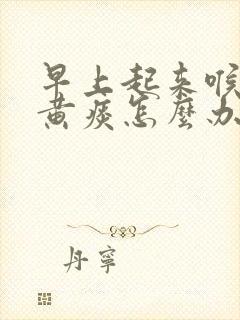 早上起来喉
黄痰怎麼办
丹寧